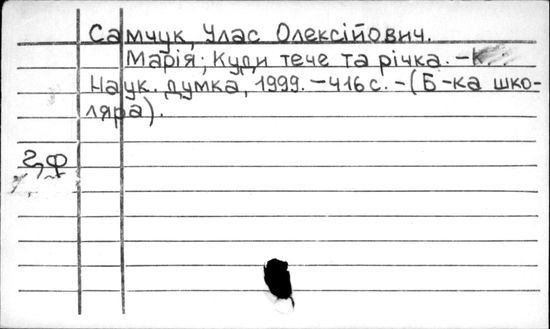 Самчук, Улас Олексійович.
Марія; Куди тече та річка. – К
Наук. думка, 1999. – 416 с. – (Б-ка шко-
ляра).